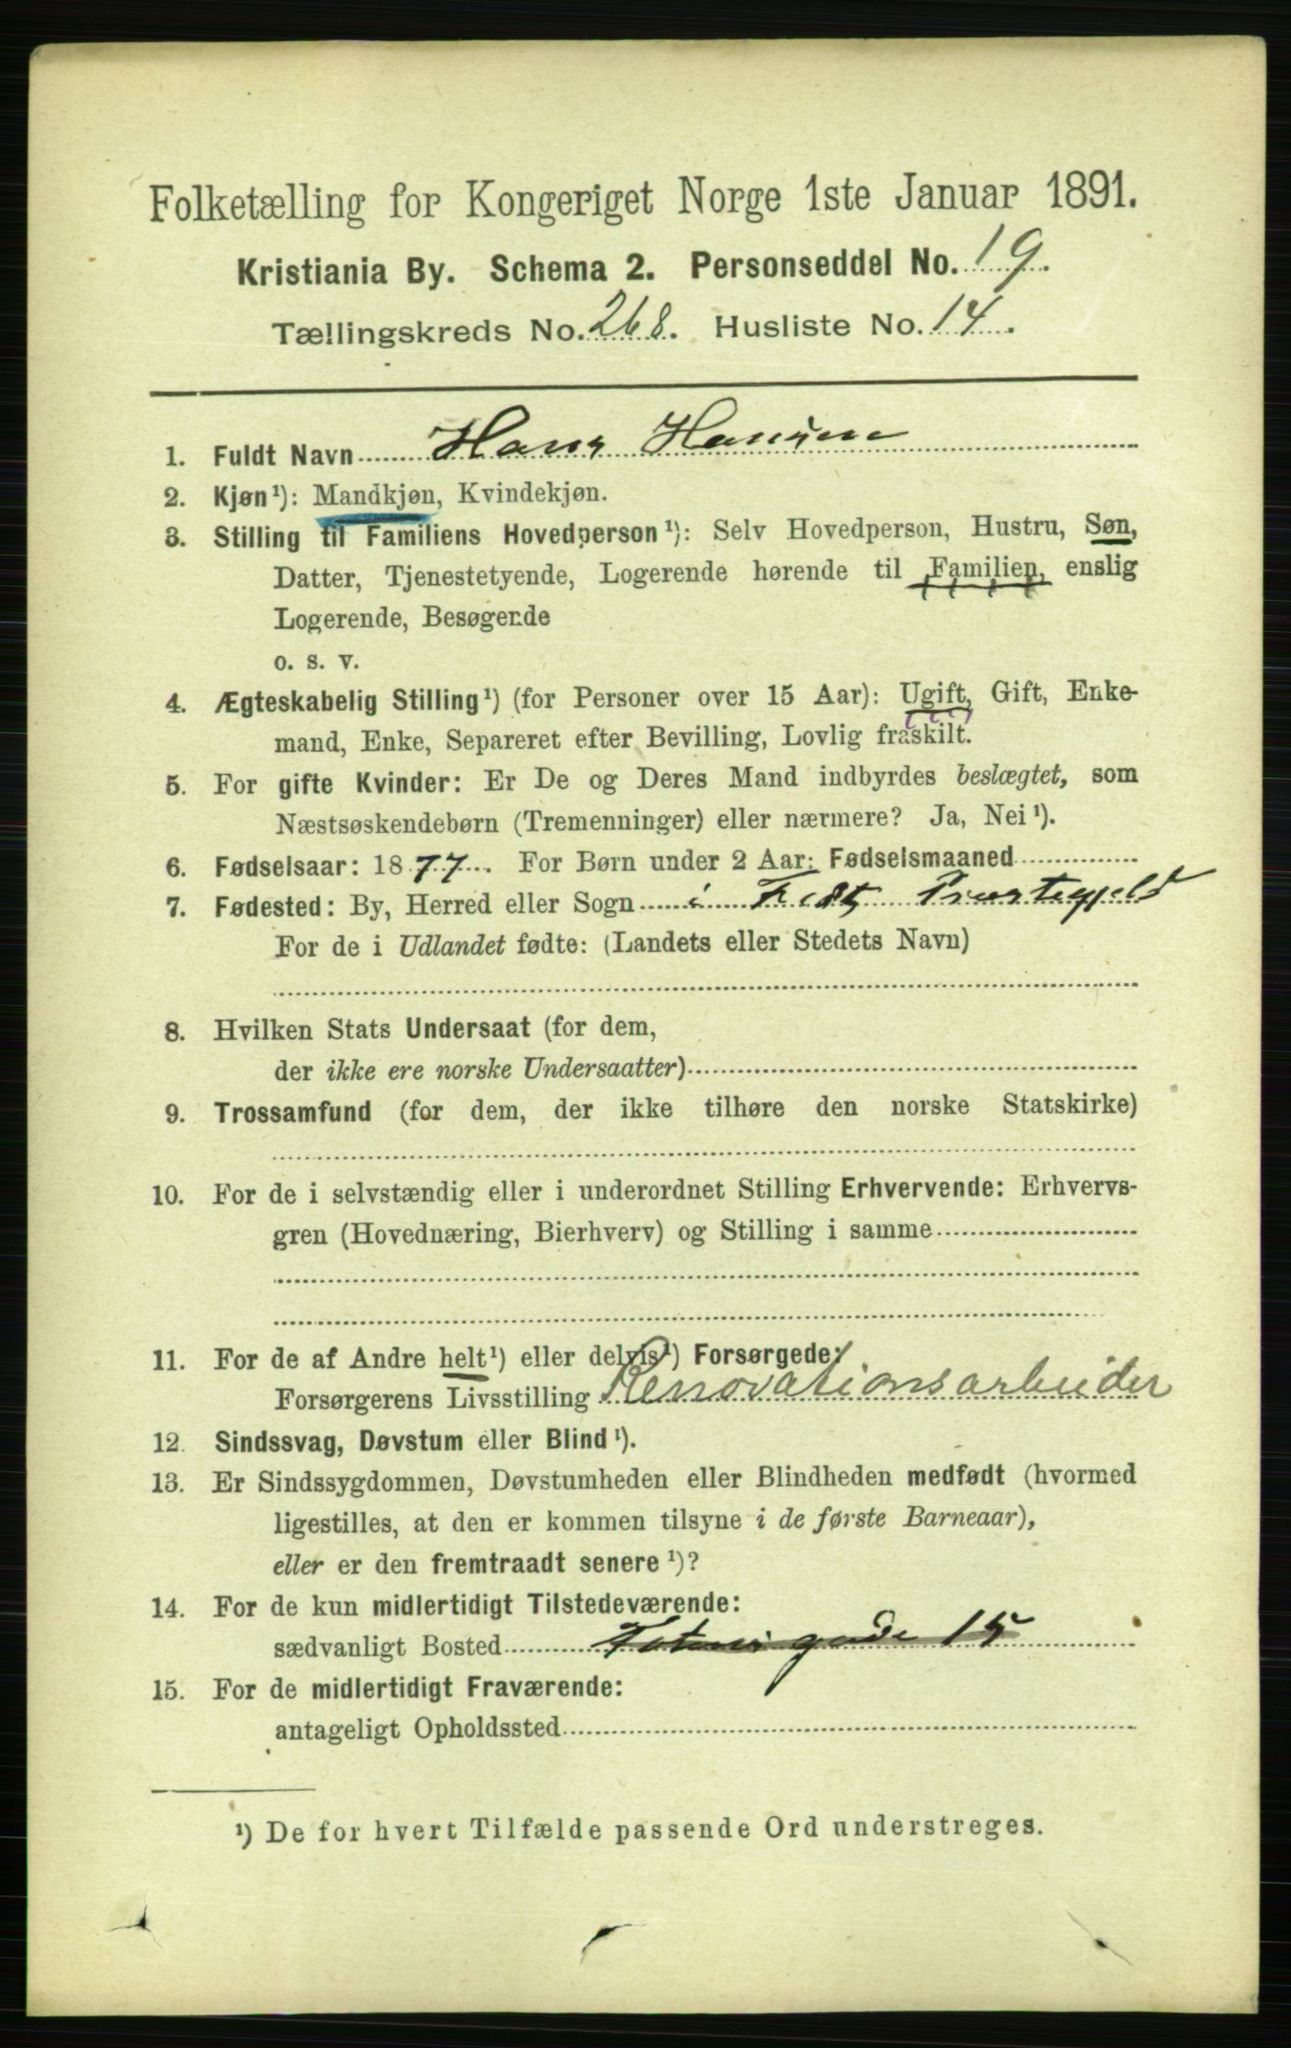 Folketælling for Kongeriget Norge 1ste Januar 1891.
Kristiania By. Schema 2. Personseddel No. 19.
Tællingskreds No. 268. Husliste No. 14.
1. Fuldt Navn Hans Hansen
2. Kjøn¹): Mandkjøn, Kvindekjøn.
3. Stilling til Familiens Hovedperson¹): Selv Hovedperson, Hustru, Søn,
Datter, Tjenestetyende, Logerende hørende til Familien, enslig
Logerende, Besøgende
o. s. v.
4. Ægteskabelig Stilling¹) (for Personer over 15 Aar): Ugift, Gift, Enke-
mand, Enke, Separeret efter Bevilling, Lovlig fraskilt.
5. For gifte Kvinder: Er De og Deres Mand indbyrdes beslægtet, som
Næstsøskendebørn (Tremenninger) eller nærmere? Ja, Nei¹).
6. Fødselsaar: 1877. For Børn under 2 Aar: Fødselsmaaned
7. Fødested: By, Herred eller Sogn i Præstegjeld
For de i Udlandet fødte: (Landets eller Stedets Navn)
8. Hvilken Stats Undersaat (for dem,
der ikke ere norske Undersaatter)
9. Trossamfund (for dem, der ikke tilhøre den norske Statskirke)
10. For de i selvstændig eller i underordnet Stilling Erhvervende: Erhvervs-
gren (Hovednæring, Bierhverv) og Stilling i samme
11. For de af Andre helt¹) eller delvis¹) Forsørgede:
Forsørgerens Livsstilling Renovationsarbeider
12. Sindssvag, Døvstum eller Blind¹).
13. Er Sindssygdommen, Døvstumheden eller Blindheden medfødt (hvormed
ligestilles, at den er kommen tilsyne i de første Barneaar),
eller er den fremtraadt senere¹)?
14. For de kun midlertidigt Tilstedeværende:
sædvanligt Bosted gade 15
15. For de midlertidigt Fraværende:
antageligt Opholdssted
¹) De for hvert Tilfælde passende Ord understreges.